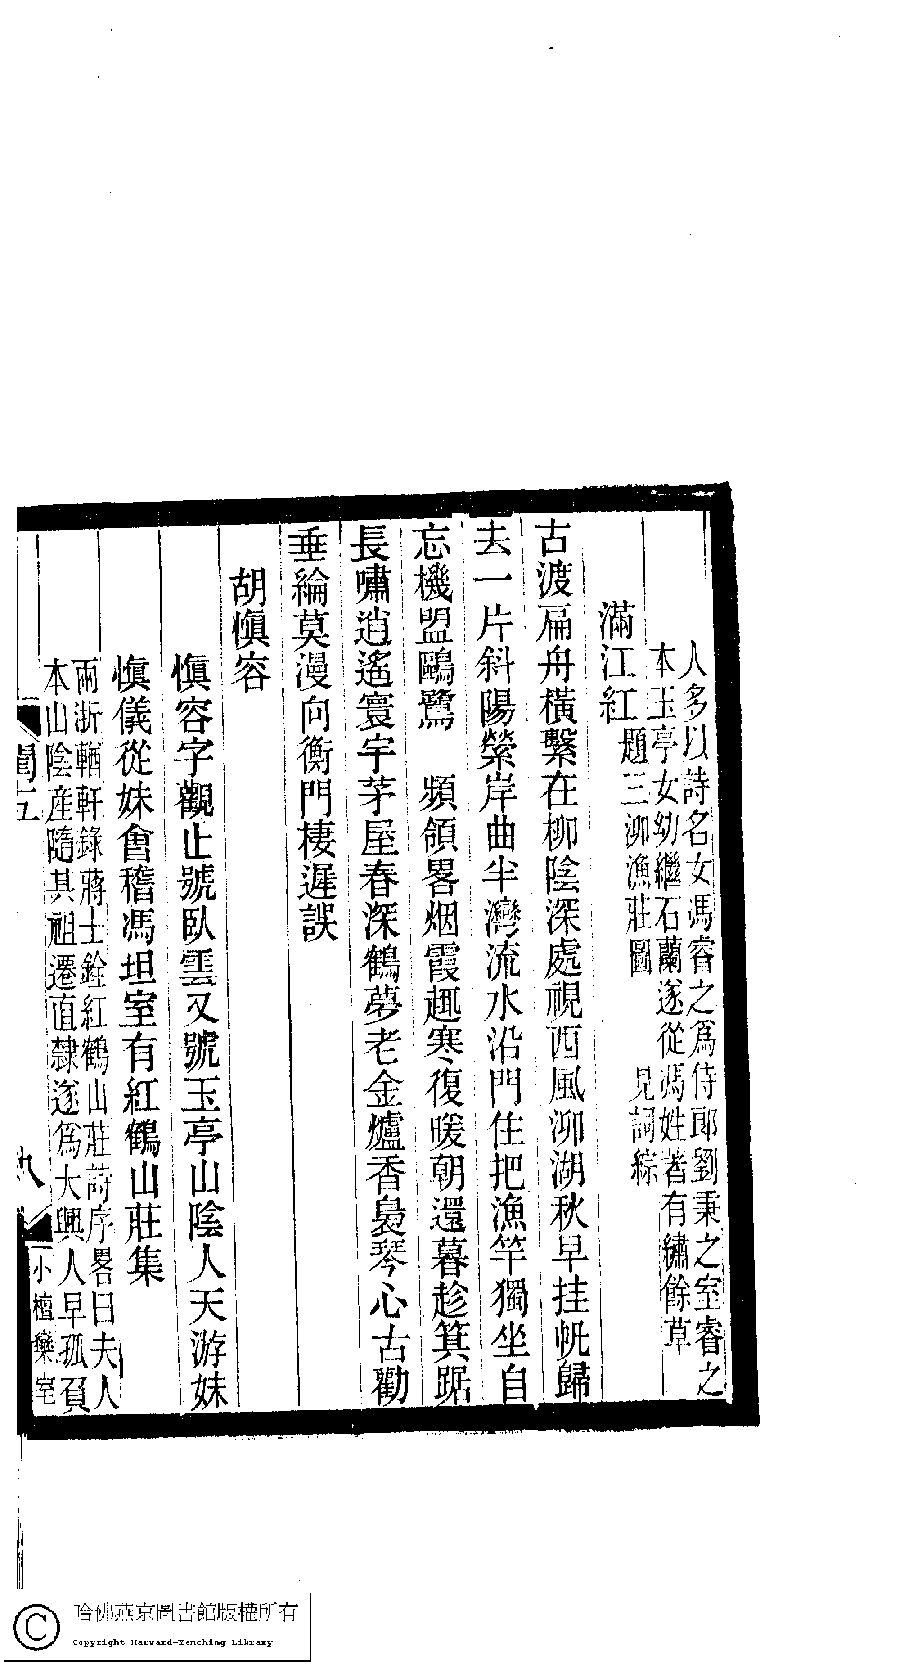 人多以詩名女馮睿之爲侍郎劉秉之室睿之
本玉亭女幼繼石蘭遂從馮姓著有繡餘草
滿江紅 題三泖漁莊圖 見詞綜
古渡扁舟橫繫在柳陰深處視西風泖湖秋早挂帆歸
去一片斜陽縈岸曲半灣流水沿門住把漁竿獨坐自
忘機盟鷗鷺 頻領畧烟霞趣寒復暖朝還暮趁箕踞
長嘯逍遙寰宇茅屋春深鶴夢老金爐香裊琴心古勸
垂綸莫漫向衡門棲遲誤
胡愼容
愼容字觀止號臥雲又號玉亭山陰人天游妹
愼儀從妹會稽馮坦室有紅鶴山莊集
兩浙輶軒錄蔣士銓紅鶴山莊詩序畧曰夫人
本山陰產隨其祖遷直隸遂爲大興人早孤頁
閨五
九
小檀欒室
哈佛燕京圖書館版權所有
Copyright Harvard-Yenching Library